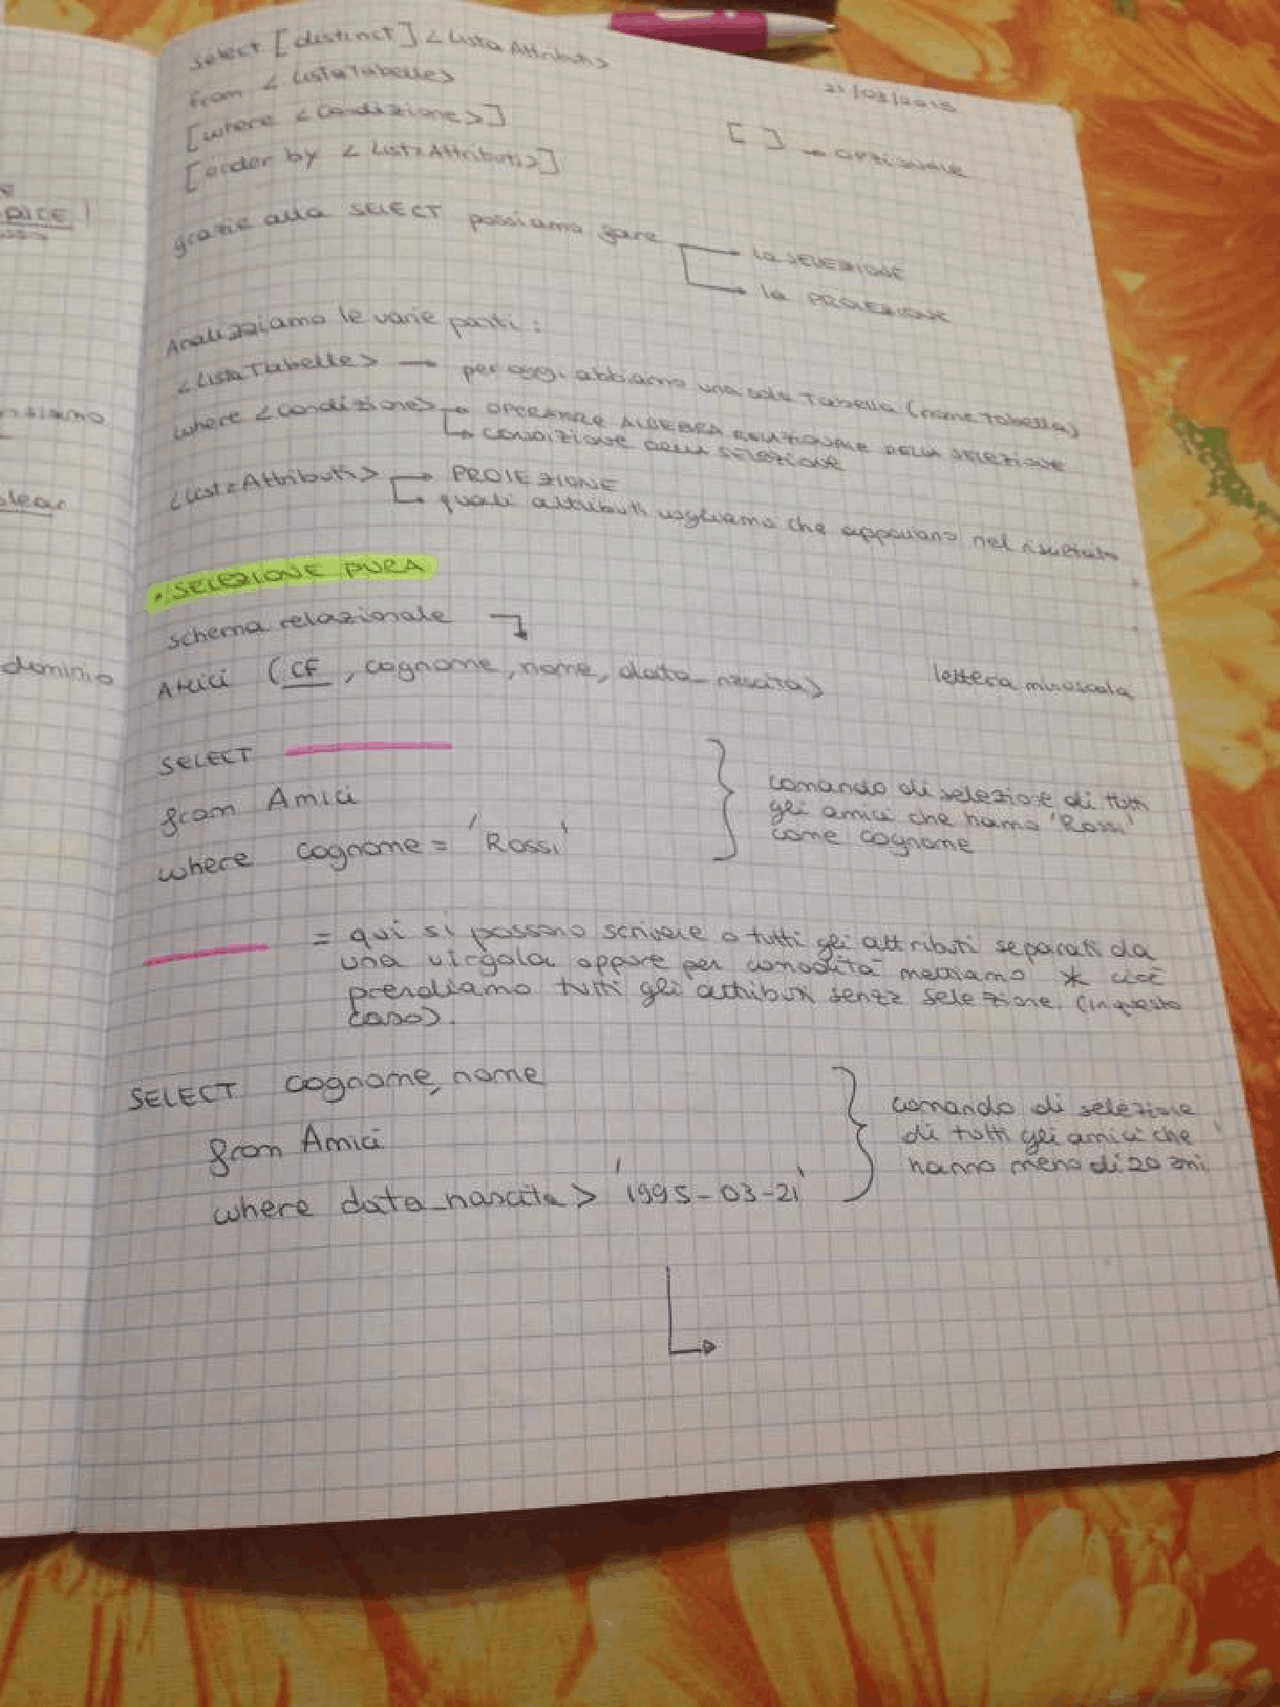 select [distinct] <ListaAttributi>
from <ListaTabelle>
[where <Condizione>]
[order by <ListaAttributi>]
[ ] → OPZIONALE
grazie alla SELECT possiamo fare
la SELEZIONE
la PROIEZIONE
Analizziamo le varie parti:
<ListaTabelle> → per oggi abbiamo una sola Tabella (nome Tabella)
where <Condizione> → OPERATORE ALGEBRA RELAZIONALE DELLA SELEZIONE
CONDIZIONE DELLA SELEZIONE
<ListaAttributi> → PROIEZIONE
quali attributi vogliamo che appaiano nel risultato
• SELEZIONE PURA
schema relazionale
Amici (CF, cognome, nome, data_nascita)
lettera minuscola
SELECT
from Amici
where cognome = 'Rossi'
comando di selezione di tutti
gli amici che hanno 'Rossi'
come cognome
= qui si possono scrivere o tutti gli attributi separati da
una virgola oppure per comodità mettiamo * cioè
prendiamo tutti gli attributi senza selezione (in questo
caso).
SELECT cognome, nome
from Amici
where data_nascita > '1995-03-21'
comando di selezione
di tutti gli amici che
hanno meno di 20 anni
DICE
dominio